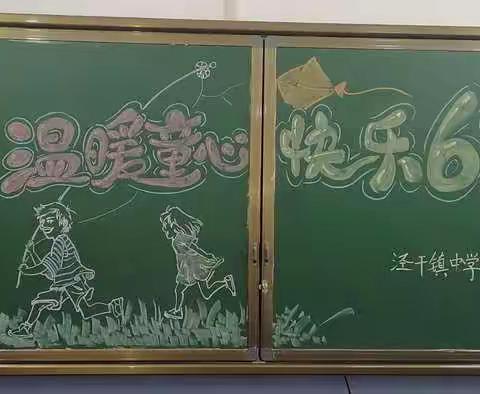 温暖童心 快乐6
泾干镇中学